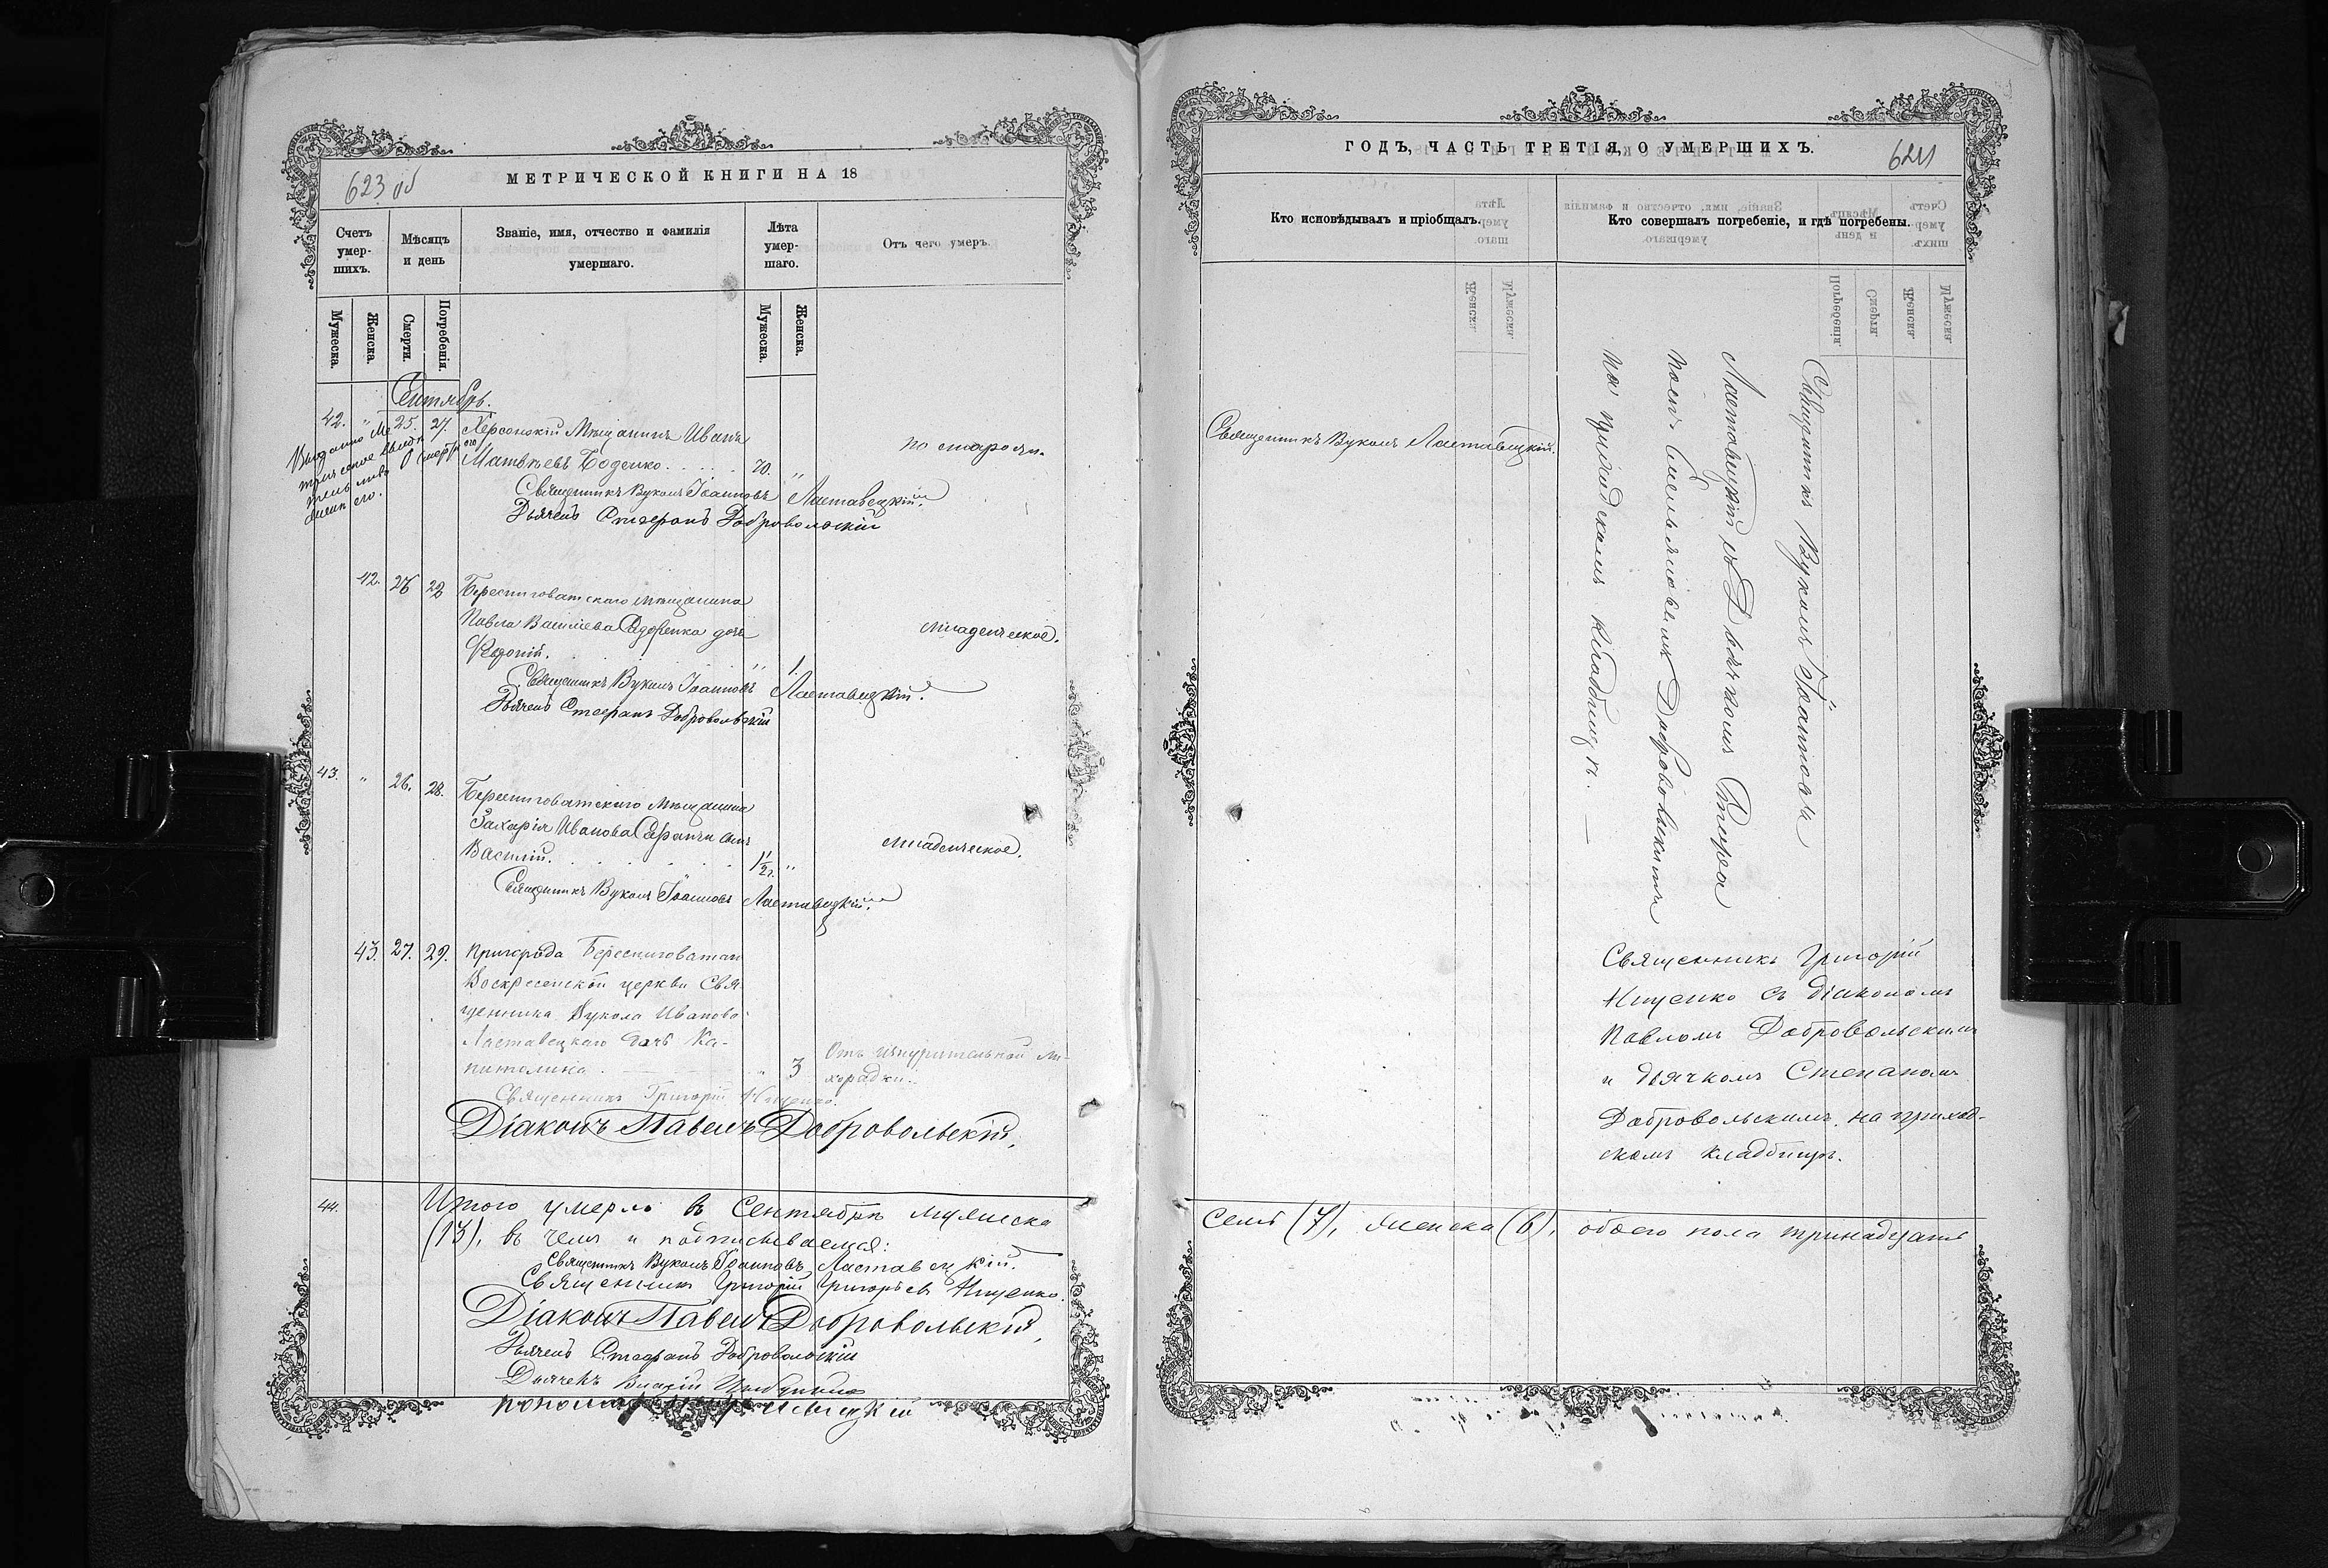 623 об
МЕТРИЧЕСКОЙ КНИГИ НА 18
Счетъ умер-шихъ.
Мѣсяцъ и день
Званіе, имя, отчество и фамилія умершаго.
Лѣта умер-шаго.
Отъ чего умеръ.
Мужеска.
Женска.
Смерти.
Погребенія.
Мужеска.
Женска.
Сентябрь.
42. " 25. 27. Херсонскій Мѣщанинъ Иванъ
Матвѣевъ Боденко 70. "
по старости.
Священникъ Вуколъ Іоанновъ Ластавецкій.
Дьячекъ Стефанъ Добровольскій
42. 26 28 Береснеговатскаго мѣщанина
Павла Васильева Сидоренка дочь
Евдокій. " 1.
младенческое.
Священникъ Вуколъ Іоанновъ Ластавецкій.
Дьячекъ Стефанъ Добровольскій
43. " 26. 28. Береснеговатскаго Мѣщанина
Захарія Иванова сынъ
Василій. 1 1/2 г. "
младенческое.
Священникъ Вуколъ Іоанновъ Ластавецкій.
43. 27. 29. Пригорода Береснеговатаго
Воскресенской церкви Свя-
щенника Вукола Иванова
Ластавецкаго дочь Ка-
питолина " 3
Отъ изнурительной ли-
хорадки.
Священникъ Григорій Нищенко.
Діаконъ Павелъ Добровольскій.
44.
Итого умерло въ Сентябрѣ мужеска
(13), въ чемъ и подписываемся:
Священникъ Вуколъ Іоанновъ Ластавецкій.
Священникъ Григорій Григорьевъ Нищенко.
Діаконъ Павелъ Добровольскій.
Дьячекъ Стефанъ Добровольскій
Дьячекъ
ГОДЪ, ЧАСТЬ ТРЕТІЯ, О УМЕРШИХЪ.
624
Кто исповѣдывалъ и пріобщалъ.
Кто совершалъ погребеніе, и гдѣ погребены.
Священникъ Вуколъ Ластавецкій.
Священникъ Вуколъ Іоанновъ
Ластавецкій съ Дьячкомъ Стефа
номъ Емельяновымъ Добровольскимъ
на приходскомъ кладбищѣ. —
Священникъ Григорій
Нищенко съ діакономъ
Павломъ Добровольскимъ
и дьячкомъ Степаномъ
Добровольскимъ, на приход-
скомъ кладбищѣ.
семь (7), женска (6), обоего пола тринадцать